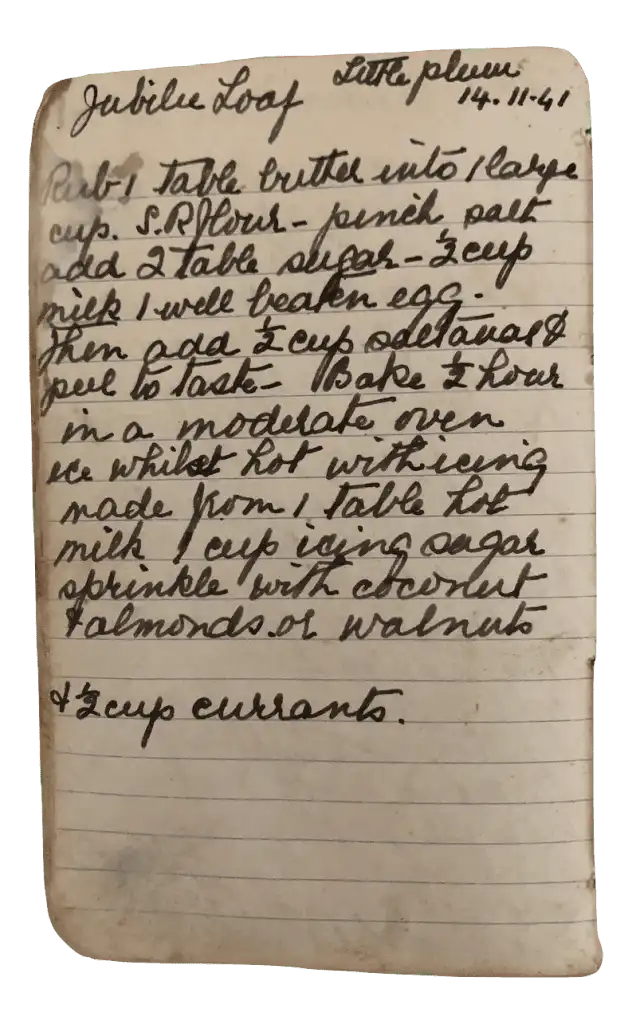 Jubilee Loaf Little plum
14.11.41
Rub 1 table butter into 1 large
cup. S.R flour - pinch salt
add 2 table sugar - ½ cup
milk 1 well beaten egg.
Then add ½ cup saltanas &
peel to taste - Bake ½ hour
in a moderate oven
ice whilst hot with icing
made from 1 table hot
milk 1 cup icing sugar
sprinkle with coconut
& almonds or walnuts
& ½ cup currants.